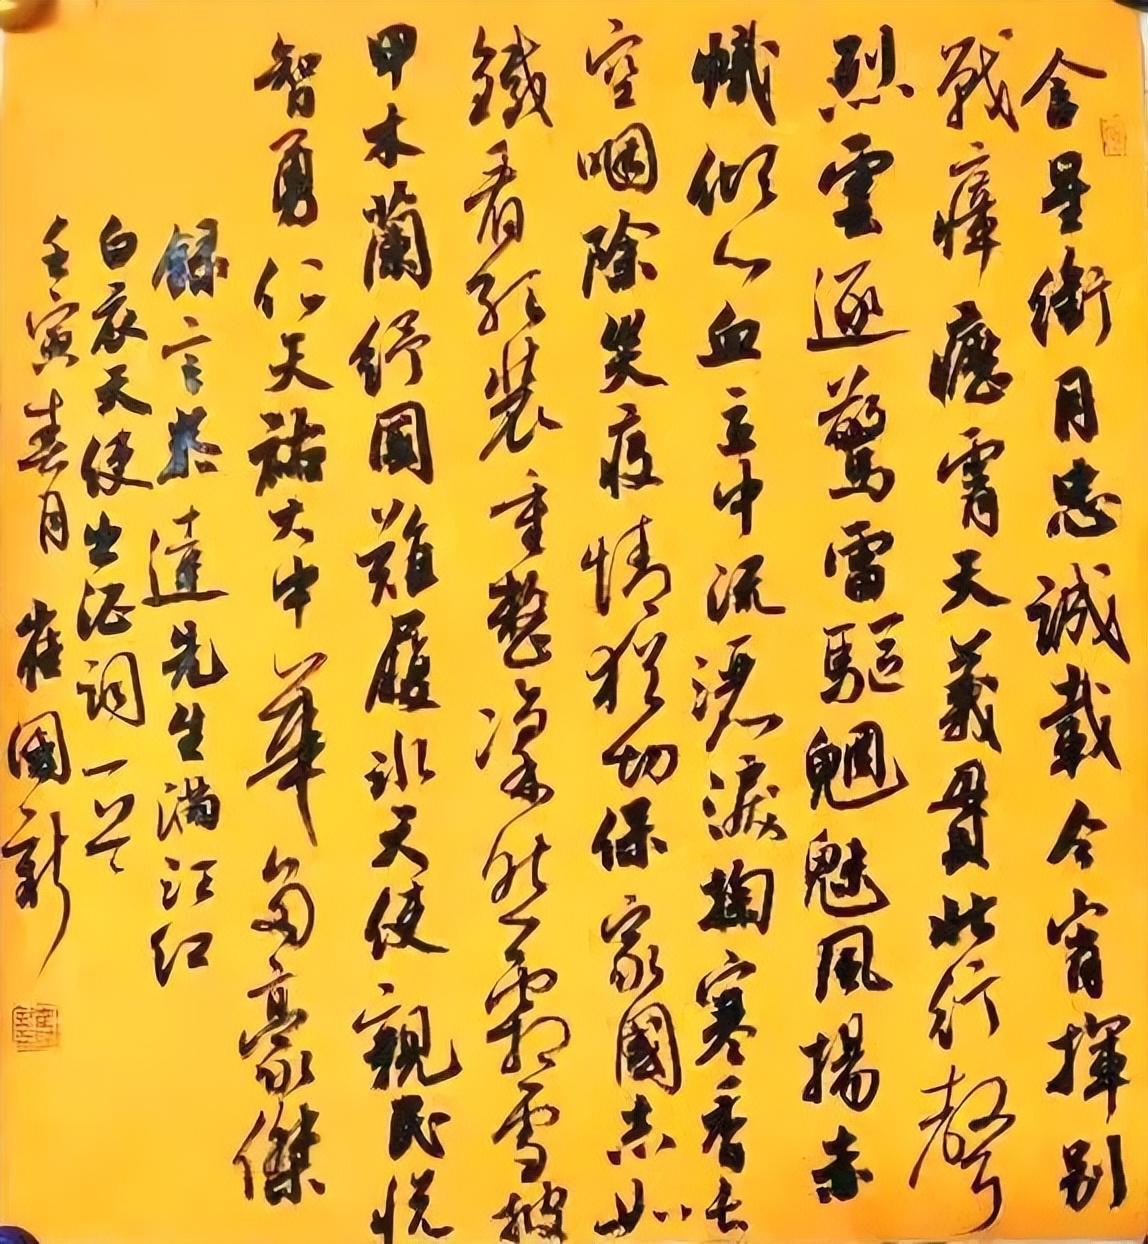 含星衔月忠誠載今宵揮别
戰瘴癘霄天義貫此行聲
烈雲逐驚雷驅魍魅風揚赤
幟似心血立中流洒淚掬寒香長
空咽除災疫情猶切保家國志如
鐵看彩裝重整凛然霜雪披
甲木蘭紓國難履冰天使親民悦
智勇仁天祐大中華多豪傑
録言恭達先生滿江红
白衣天使出征詞一首
壬寅春月崔國新